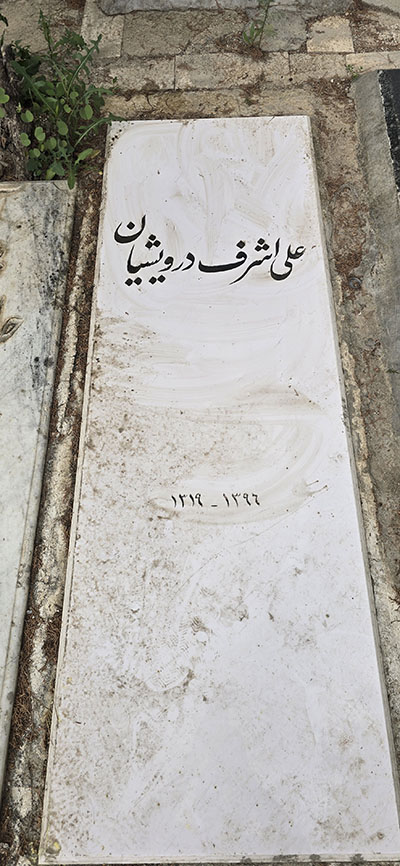 علی اشرف درویشیان
۱۳۱۹ - ۱۳۹۶